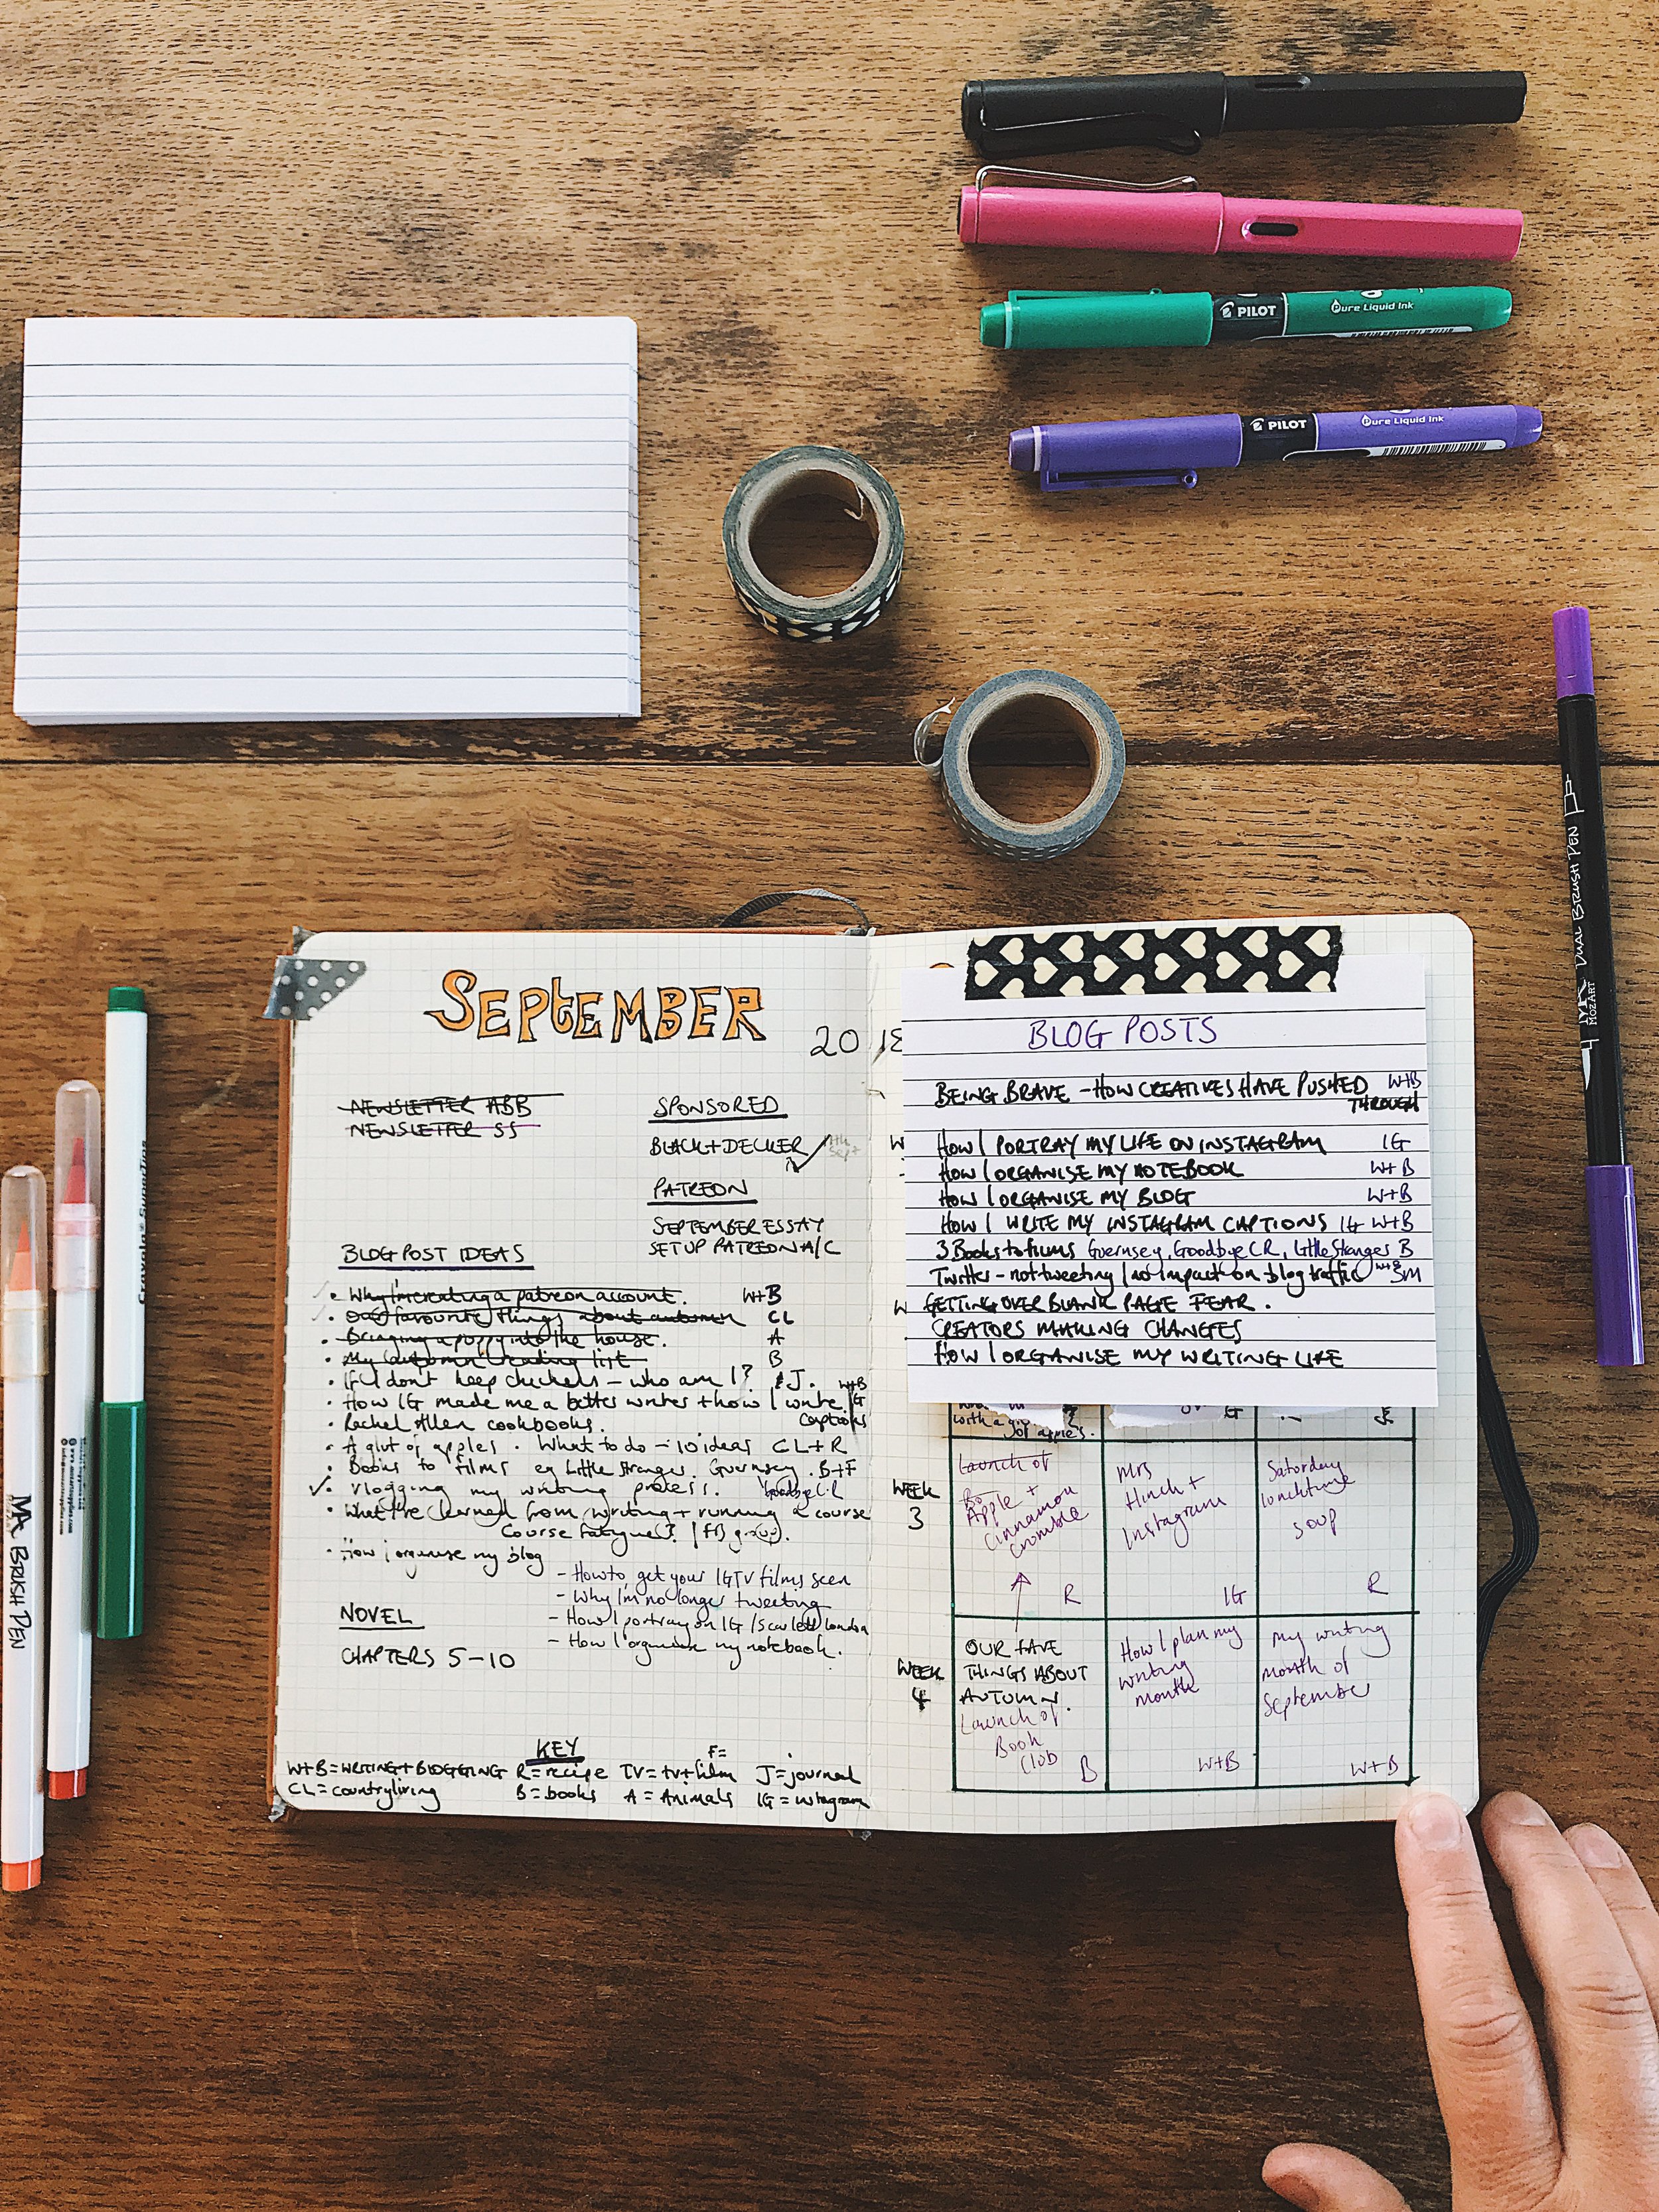 PILOT
Pure Liquid Ink
PILOT
Pure Liquid Ink
4 MOZART DUAL BRUSH PEN
Crayola SuperTips
BRUSH PEN
SEPTEMBER
2018
NEWSLETTER ABB
NEWSLETTER SS
SPONSORED
BLACK+DECKER
PATREON
SEPTEMBER ESSAY
SET UP PATREON A/C
BLOG POST IDEAS
Why I'm creating a patreon account. W+B
Our favourite things about autumn CL
Bringing a puppy into the house. A
My autumn reading list B
If I don't keep chickens - who am I? J.
How IG made me a better writer + how I write IG W+B
captions
Rachel Allen cookbooks.
A glut of apples. What to do - 10 ideas CL+R
Books to films eg Little Stranger. Guernsey. B+F
Vlogging my writing process. Goodbye C.R
What I've learned from writing + running a course
Course fatigue? / FB group.
How I organise my blog
- How to get your IGTV films seen
- Why I'm no longer tweeting
- How I portray on IG / Scarlett London
- How I organise my notebook.
NOVEL
CHAPTERS 5-10
KEY
W+B = WRITING + BLOGGING R = recipe TV = tv + film J = journal
F=
CL = country living B = books A = Animals IG = instagram
BLOG POSTS
BEING BRAVE - HOW CREATIVES HAVE PUSHED W+B
THROUGH
HOW I PORTRAY MY LIFE ON INSTAGRAM IG
HOW I ORGANISE MY NOTEBOOK W+B
HOW I ORGANISE MY BLOG W+B
HOW I WRITE MY INSTAGRAM CAPTIONS IG W+B
3 Books to films Guernsey, Goodbye CR, Little Stranger B
Twitter - not tweeting / no impact on blog traffic W+B SM
W GETTING OVER BLANK PAGE FEAR.
CREATORS MAKING CHANGES
HOW I ORGANISE MY WRITING LIFE
with a
of apples.
WEEK
3
Launch of
Apple +
Cinnamon
crumble
R
Mrs
Hinch +
Instagram
IG
Saturday
lunchtime
soup
R
WEEK
4
OUR FAVE
THINGS ABOUT
AUTUMN.
Launch of
Book
Club
B
How I plan my
writing
month
W+B
My writing
month of
September
W+B